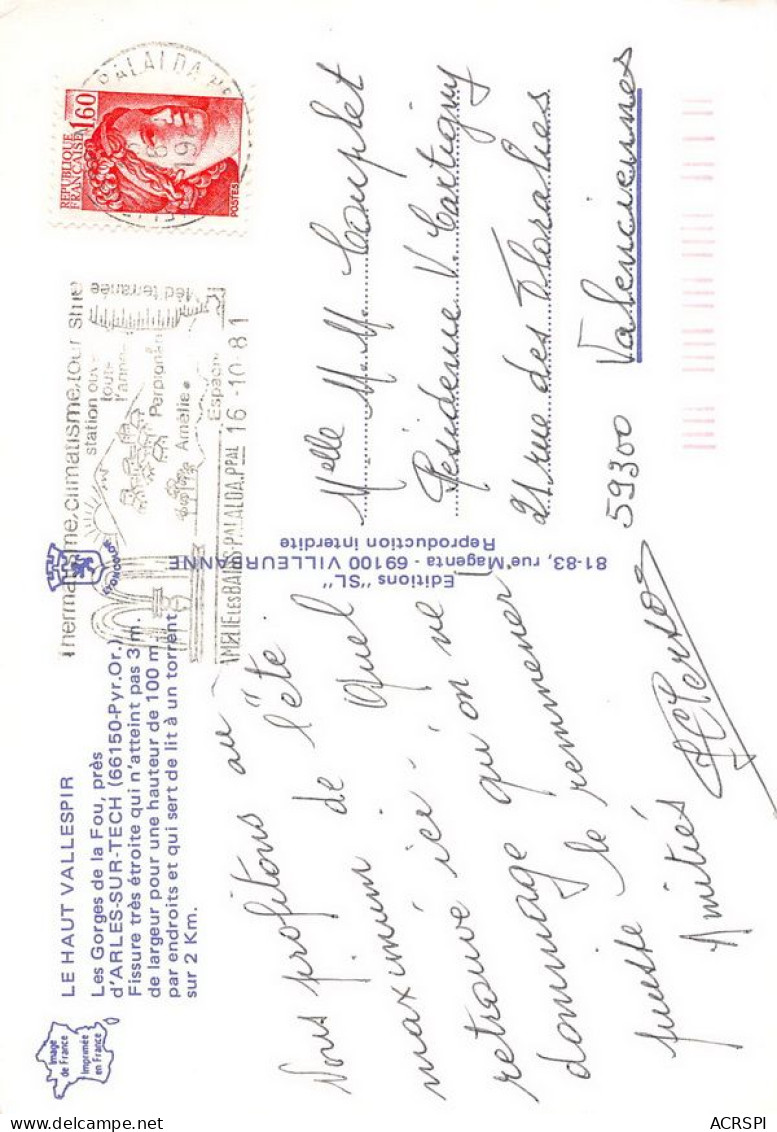 Image
de France
Imprimée
en France
LE HAUT VALLESPIR
Les Gorges de la Fou, près
d'ARLES-SUR-TECH (66150-Pyr.Or.)
Fissure très étroite qui n'atteint pas 3 m.
de largeur pour une hauteur de 100 m.
par endroits et qui sert de lit à un torrent
sur 2 Km.
LYONCOLOR
Nous profitons au
maximum de l'été.
retrouve ici. Quel
dommage qu'on ne
puisse le remmener
Amitiés
Editions "SL"
81-83, rue Magenta - 69100 VILLEURBANNE
Reproduction interdite
thermalisme, climatisme, tourisme
station ouv
toute
l'année
Méditerranée
Perpignan
Amélie
Espagne
AMELIE LES BAINS PALALDA. PPAL 16-10-81
PALALDA
REPUBLIQUE
FRANÇAISE
1,60
POSTES
Melle M.M. Couplet
Résidence V. Cartigny
21 rue des Floralies
59300 Valenciennes
ACRSPI